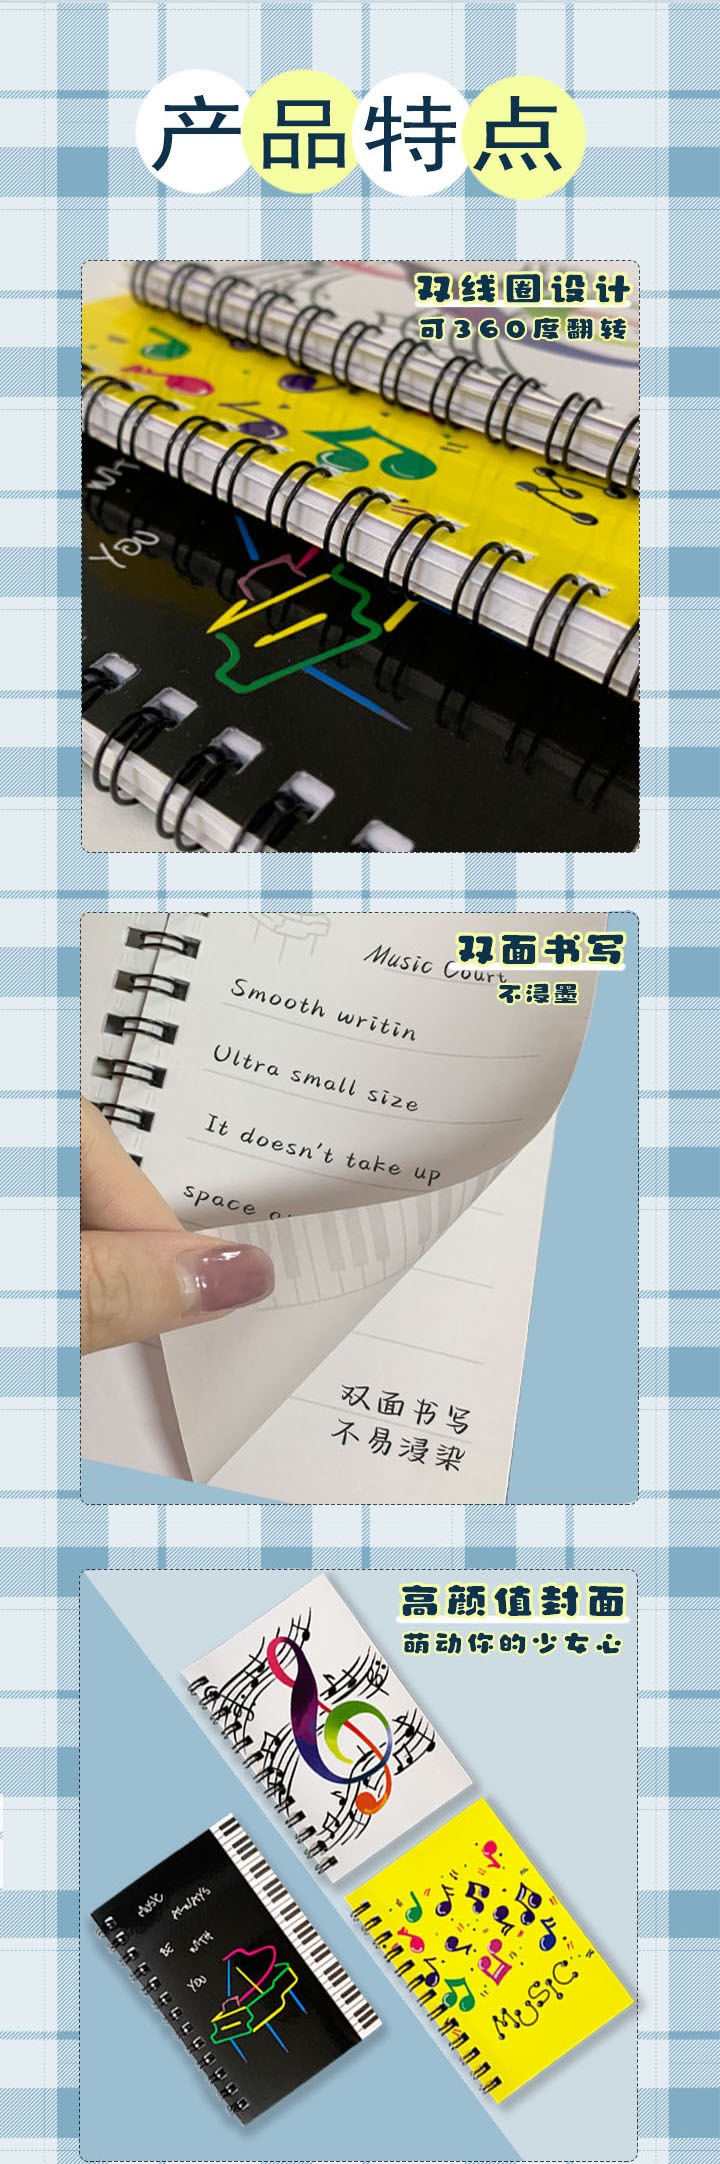 产品特点
双线圈设计
可360度翻转
YOU
双面书写
不浸墨
Music Court
Smooth writin
Ultra small size
It doesn't take up
space
双面书写
不易浸染
高颜值封面
萌动你的少女心
MUSIC
ALWAYS
BE WITH
YOU
MUSIC